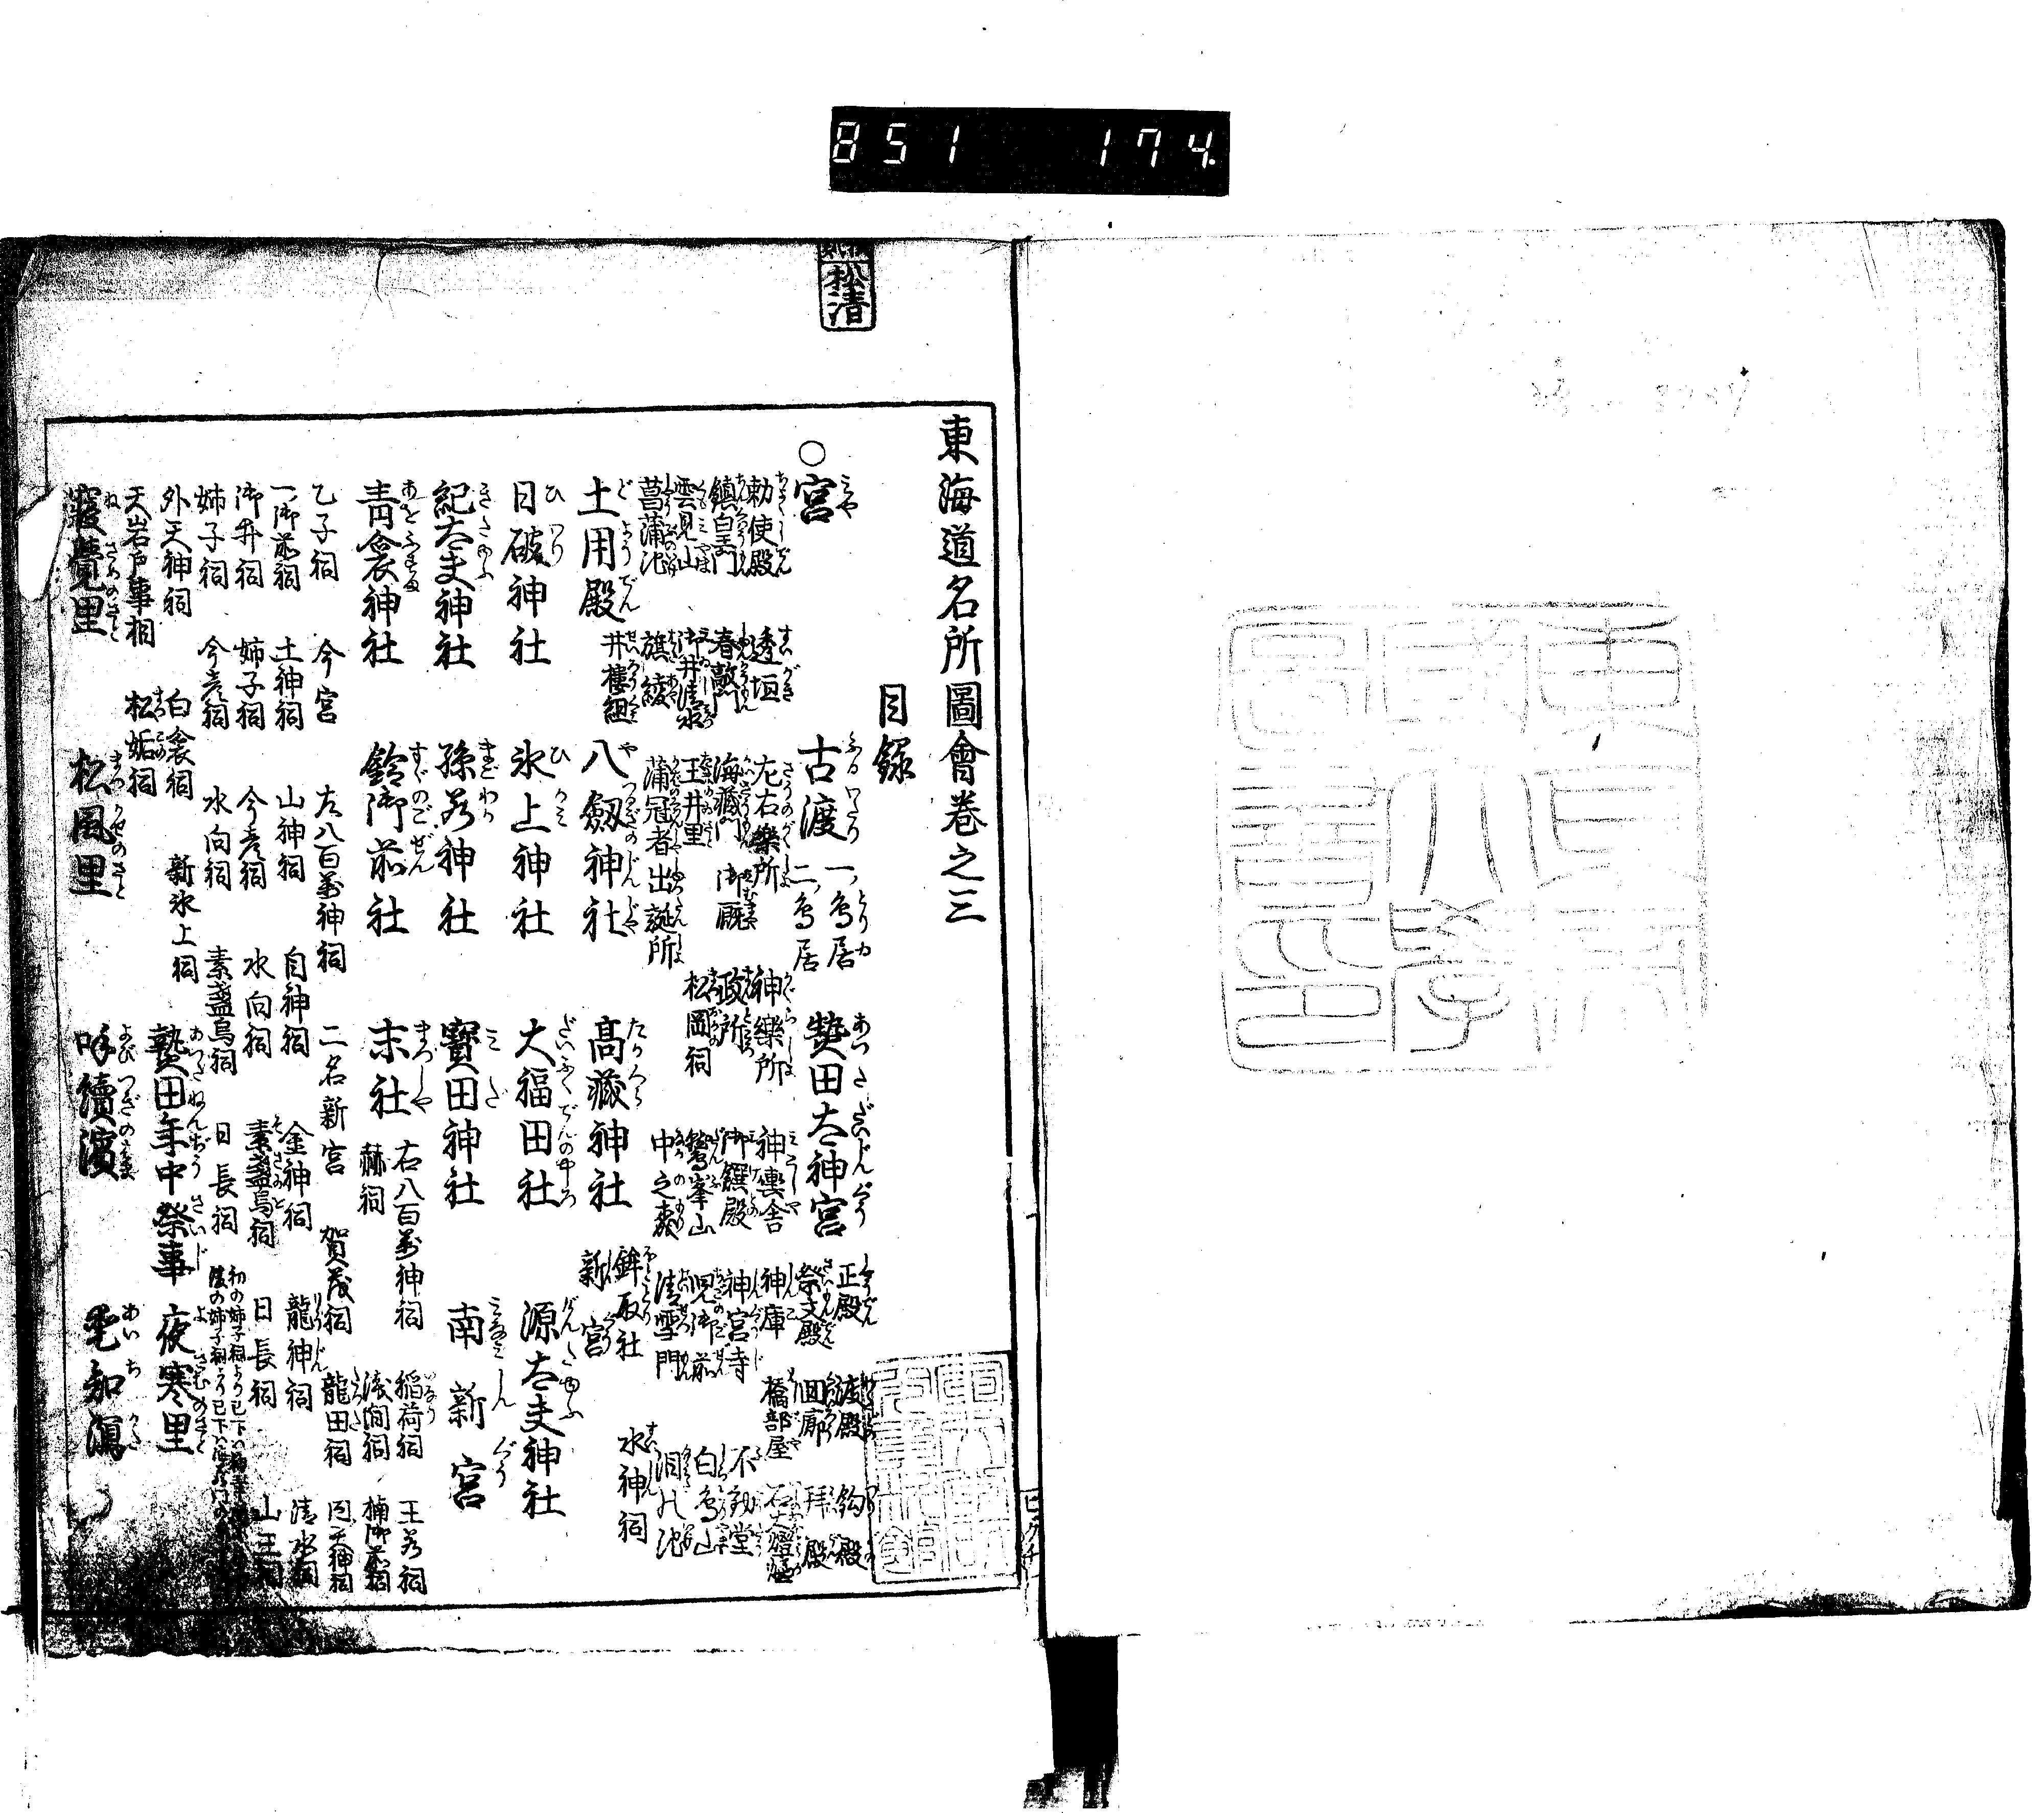 851 174.
松清
東海道名所圖會卷之三
目録
○宮 古渡 一ノ鳥居 二ノ鳥居 熱田太神宮 正殿 渡殿 釣殿 祭文殿 回廊 拜殿
勅使殿 透垣 左右樂所 神樂所 神輿舎 神庫 橋部屋 石大燈籠
鎮皇門 春敲門 海藏門 御厩 政所 御饌殿 神宮寺 不動堂
雲見山 御井清水 玉井里 松岡祠 鷲峯山 児御前 白鳥山
菖蒲池 旗綾 蒲冠者出誕所 中之森 清雪門 泪の池
土用殿 井樓組 八劔神社 高藏神社 鉾取社 新宮 水神祠
日破神社 氷上神社 大福田社 源太夫神社
紀太夫神社 孫若神社 寶田神社 南新宮
青衾神社 鈴御前社 末社 右八百萬神祠 稲荷祠 王若祠
赫祠 浅間祠 楠御前祠
乙子祠 今宮 左八百萬神祠 二名新宮 賀茂祠 龍田祠 内天神祠
一御前祠 土神祠 山神祠 自神祠 金神祠 龍神祠 清水祠
御井祠 姉子祠 今彦祠 水向祠 素盞烏祠 日長祠 山王祠
姉子祠 今彦祠 水向祠 素盞烏祠 日長祠
外天神祠 白衾祠 新氷上祠 熱田年中祭事 夜寒里
天岩戸事相 松姤祠
寝覺里 松風里 呼續濱 愛知潟
東京大學圖書印